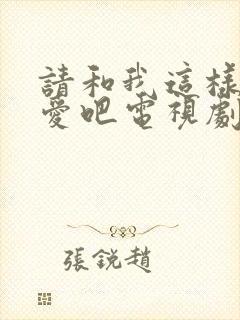 請和我這樣
愛吧電視劇
張銳趙